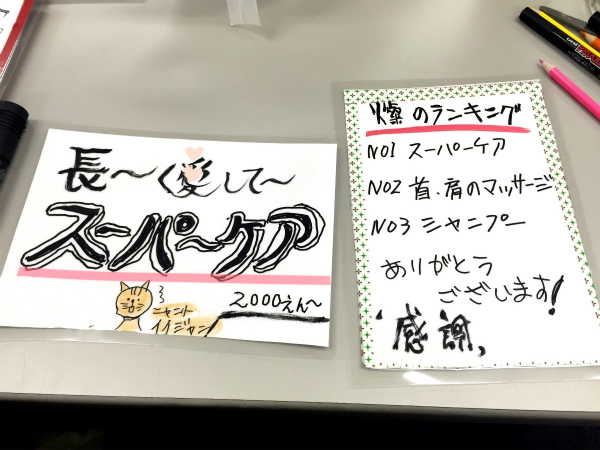 長〜く愛して〜
スーパ〜ケア
2,000えん〜
ニャント
イイジャン
燦のランキング
NO1 スーパーケア
NO2 首、肩のマッサージ
NO3 シャンプー
ありがとう
ございます!
'感謝,